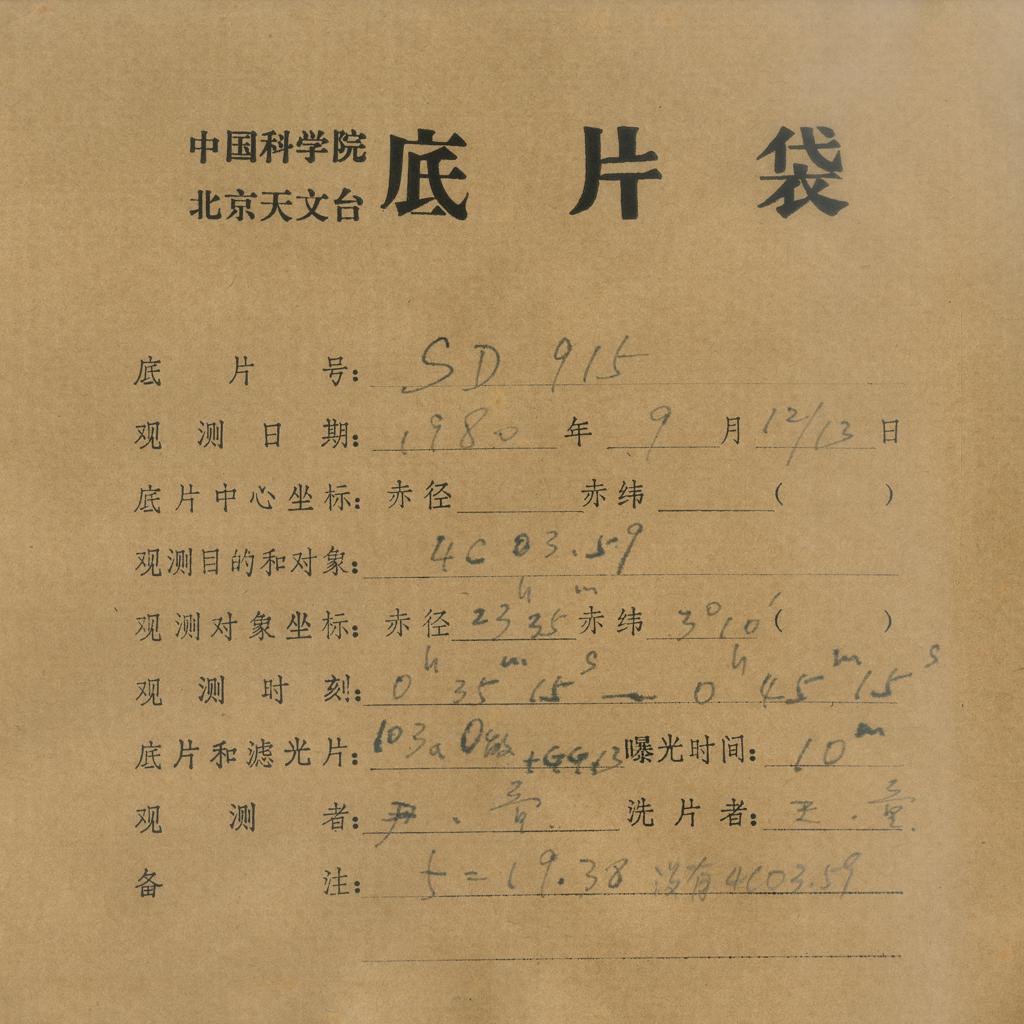 中国科学院
北京天文台
底片袋
底片号：SD 915
观测日期：1980年9月12/13日
底片中心坐标：赤径 赤纬 （ ）
观测目的和对象：4C 03.59
观测对象坐标：赤径 23h 35m 赤纬 3°10′（ ）
观测时刻：0h 35m 15s — 0h 45m 15s
底片和滤光片：103a O +GG13 曝光时间：10m
观测者： 洗片者：
备注： = 19.38 没有4C03.59